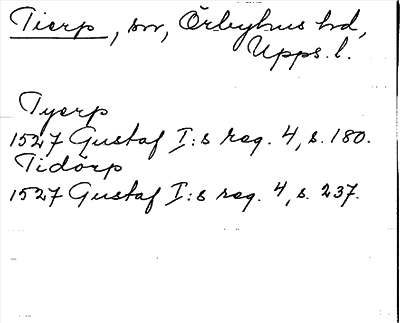 Tierp, sn, Örbyhus hd,
Upps. l.
Tyerp
1527 Gustaf I:s reg. 4, s. 180.
Tidörp
1527 Gustaf I:s reg. 4, s. 237.